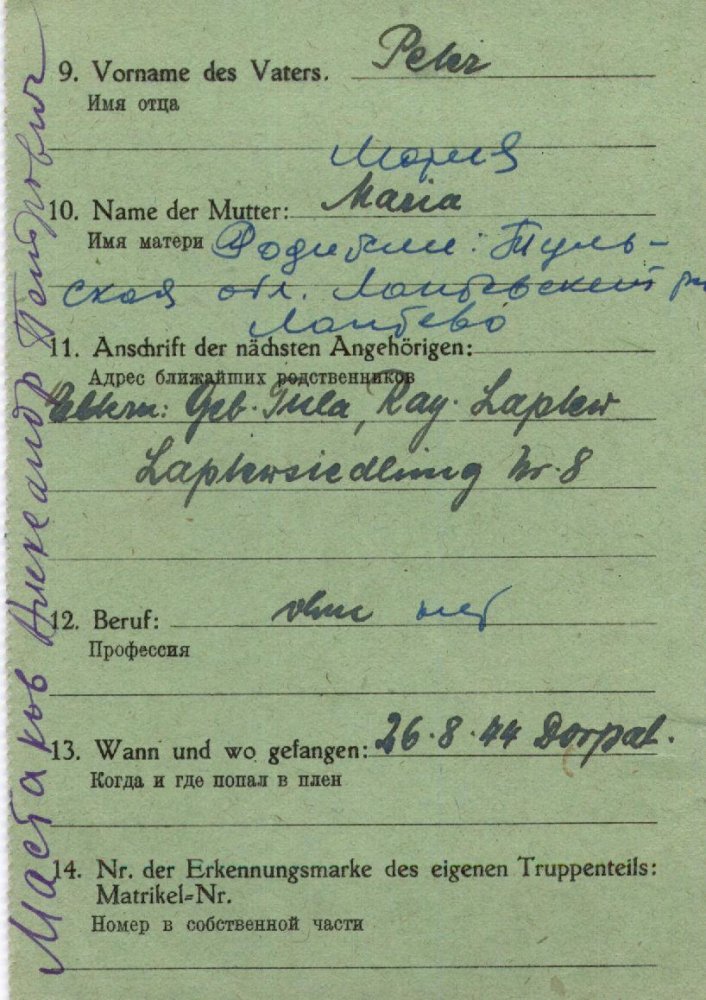 Мастаков Александр Петрович
9. Vorname des Vaters. Petr
Имя отца
Мария
10. Name der Mutter: Maria
Имя матери Родители: Туль-
ская обл. Лаптевский
Лаптево
11. Anschrift der nächsten Angehörigen:
Адрес ближайших родственников
Eltern: Geb. Tula, Ray. Laptew
Laptewsiedlung Nr. 8
12. Beruf: ohne нет
Профессия
13. Wann und wo gefangen: 26.8.44 Dorpat.
Когда и где попал в плен
14. Nr. der Erkennungsmarke des eigenen Truppenteils:
Matrikel-Nr.
Номер в собственной части